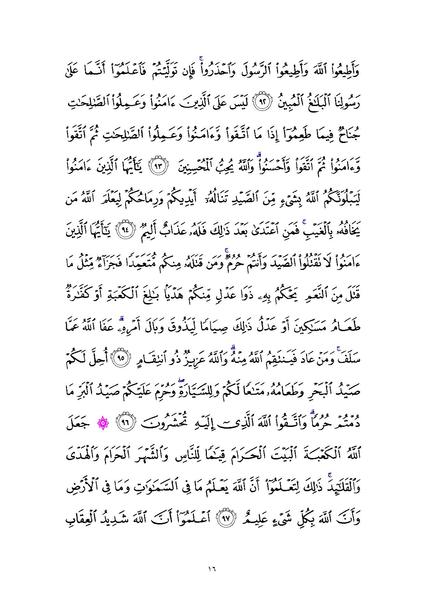 وَأَطِيعُوا۟ ٱللَّهَ وَأَطِيعُوا۟ ٱلرَّسُولَ وَٱحْذَرُوا۟ ۚ فَإِن تَوَلَّيْتُمْ فَٱعْلَمُوٓا۟ أَنَّمَا عَلَىٰ
رَسُولِنَا ٱلْبَلَٰغُ ٱلْمُبِينُ ٩٢ لَيْسَ عَلَى ٱلَّذِينَ ءَامَنُوا۟ وَعَمِلُوا۟ ٱلصَّٰلِحَٰتِ
جُنَاحٌ فِيمَا طَعِمُوٓا۟ إِذَا مَا ٱتَّقَوا۟ وَّءَامَنُوا۟ وَعَمِلُوا۟ ٱلصَّٰلِحَٰتِ ثُمَّ ٱتَّقَوا۟
وَّءَامَنُوا۟ ثُمَّ ٱتَّقَوا۟ وَّأَحْسَنُوا۟ ۗ وَٱللَّهُ يُحِبُّ ٱلْمُحْسِنِينَ ٩٣ يَٰٓأَيُّهَا ٱلَّذِينَ ءَامَنُوا۟
لَيَبْلُوَنَّكُمُ ٱللَّهُ بِشَىْءٍ مِّنَ ٱلصَّيْدِ تَنَالُهُۥٓ أَيْدِيكُمْ وَرِمَاحُكُمْ لِيَعْلَمَ ٱللَّهُ مَن
يَخَافُهُۥ بِٱلْغَيْبِ ۚ فَمَنِ ٱعْتَدَىٰ بَعْدَ ذَٰلِكَ فَلَهُۥ عَذَابٌ أَلِيمٌ ٩٤ يَٰٓأَيُّهَا ٱلَّذِينَ
ءَامَنُوا۟ لَا تَقْتُلُوا۟ ٱلصَّيْدَ وَأَنتُمْ حُرُمٌ ۚ وَمَن قَتَلَهُۥ مِنكُم مُّتَعَمِّدًا فَجَزَآءٌ مِّثْلُ مَا
قَتَلَ مِنَ ٱلنَّعَمِ يَحْكُمُ بِهِۦ ذَوَا عَدْلٍ مِّنكُمْ هَدْيًۢا بَٰلِغَ ٱلْكَعْبَةِ أَوْ كَفَّٰرَةٌ
طَعَامُ مَسَٰكِينَ أَوْ عَدْلُ ذَٰلِكَ صِيَامًا لِّيَذُوقَ وَبَالَ أَمْرِهِۦ ۗ عَفَا ٱللَّهُ عَمَّا
سَلَفَ ۚ وَمَنْ عَادَ فَيَنتَقِمُ ٱللَّهُ مِنْهُ ۗ وَٱللَّهُ عَزِيزٌ ذُو ٱنتِقَامٍ ٩٥ أُحِلَّ لَكُمْ
صَيْدُ ٱلْبَحْرِ وَطَعَامُهُۥ مَتَٰعًا لَّكُمْ وَلِلسَّيَّارَةِ ۖ وَحُرِّمَ عَلَيْكُمْ صَيْدُ ٱلْبَرِّ مَا
دُمْتُمْ حُرُمًا ۗ وَٱتَّقُوا۟ ٱللَّهَ ٱلَّذِىٓ إِلَيْهِ تُحْشَرُونَ ٩٦ ۞ جَعَلَ
ٱللَّهُ ٱلْكَعْبَةَ ٱلْبَيْتَ ٱلْحَرَامَ قِيَٰمًا لِّلنَّاسِ وَٱلشَّهْرَ ٱلْحَرَامَ وَٱلْهَدْىَ
وَٱلْقَلَٰٓئِدَ ۚ ذَٰلِكَ لِتَعْلَمُوٓا۟ أَنَّ ٱللَّهَ يَعْلَمُ مَا فِى ٱلسَّمَٰوَٰتِ وَمَا فِى ٱلْأَرْضِ
وَأَنَّ ٱللَّهَ بِكُلِّ شَىْءٍ عَلِيمٌ ٩٧ ٱعْلَمُوٓا۟ أَنَّ ٱللَّهَ شَدِيدُ ٱلْعِقَابِ
١٦